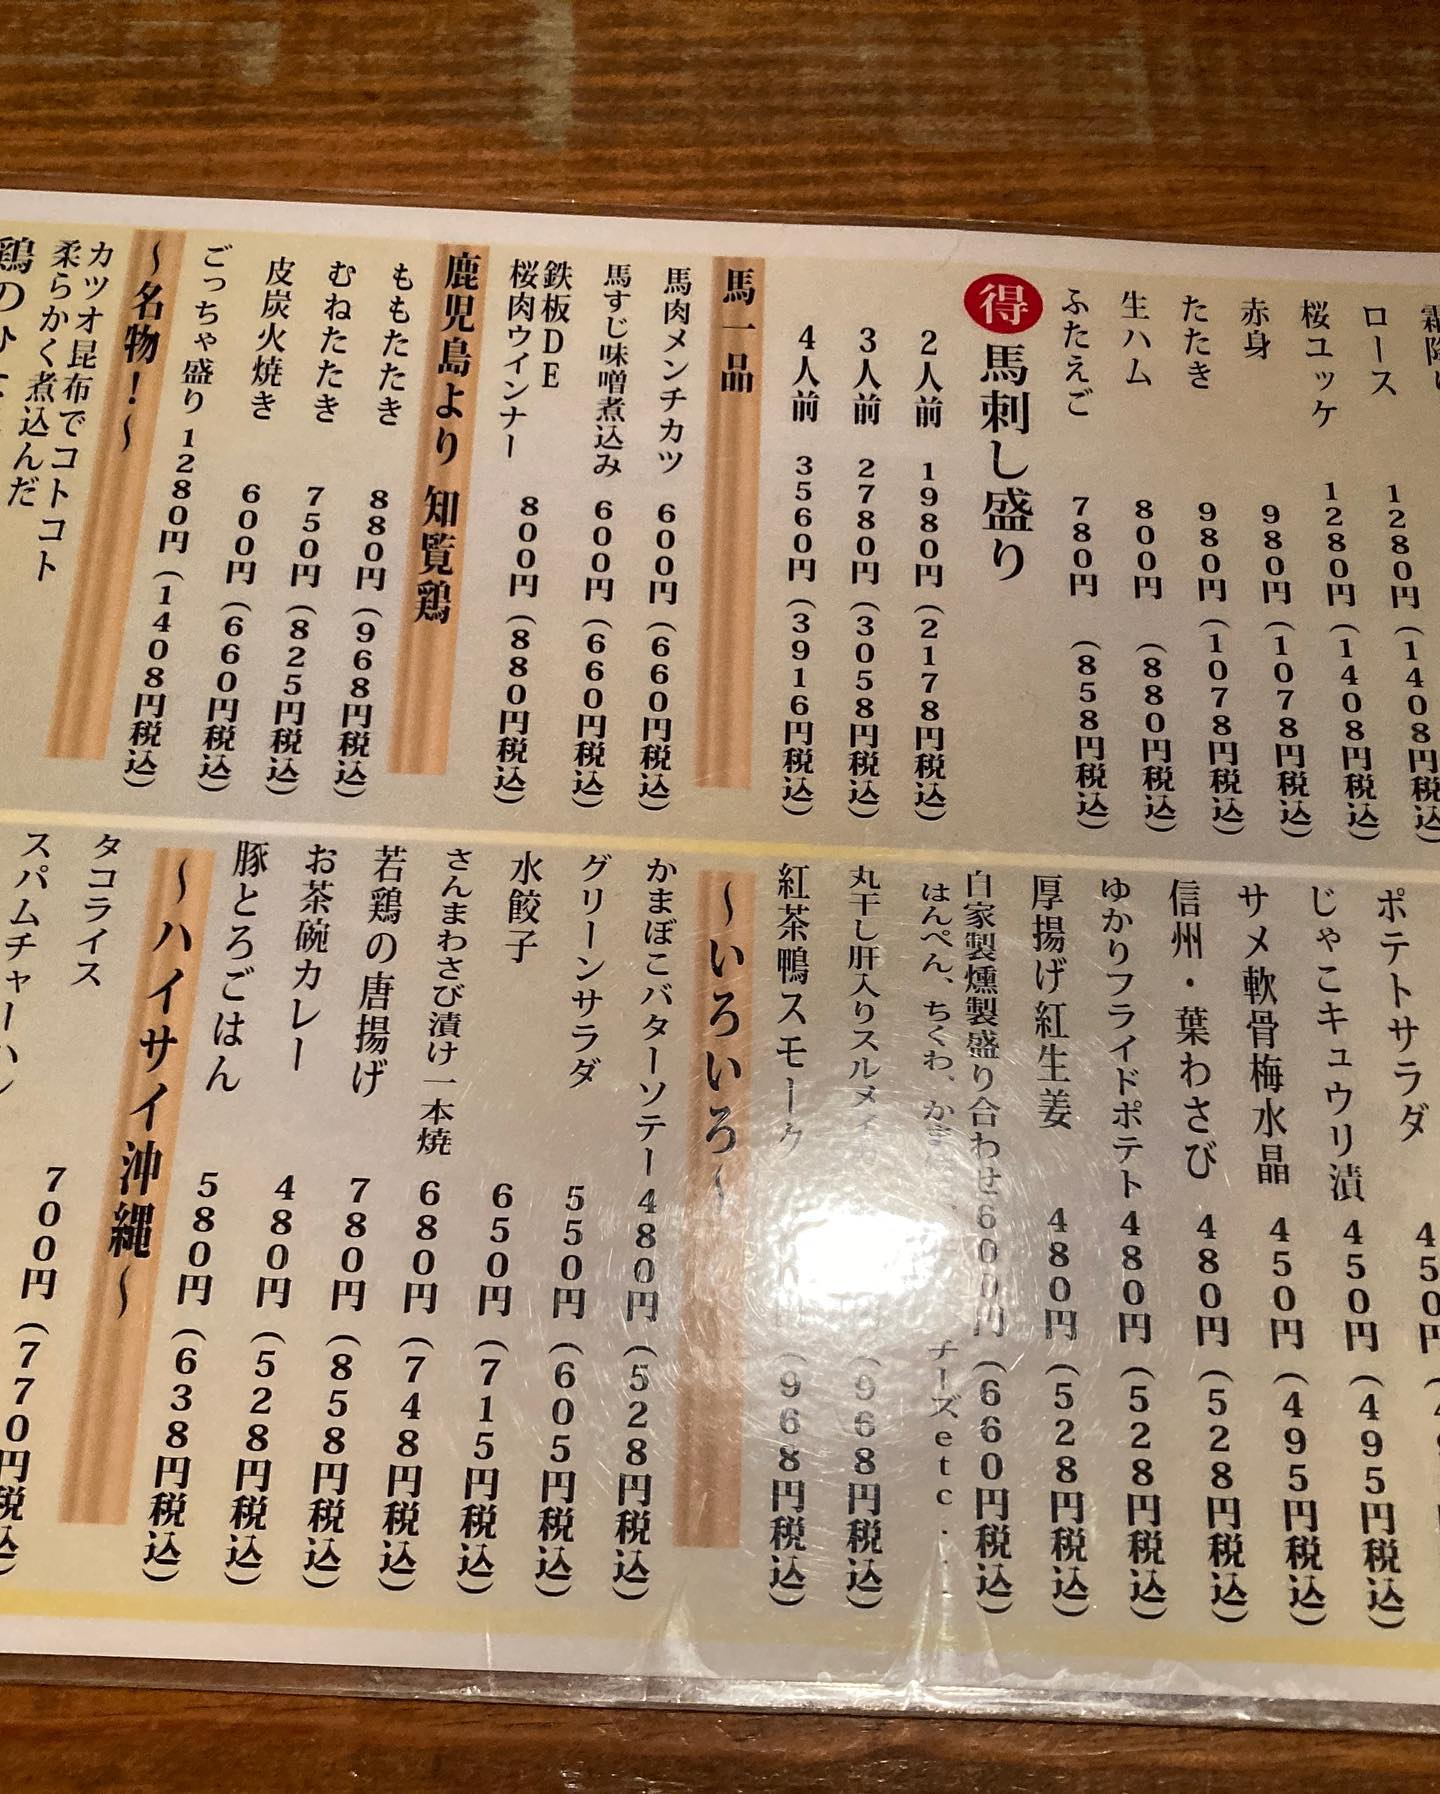 ロース 1280円（1408円税込）
桜ユッケ 1280円（1408円税込）
赤身 980円（1078円税込）
たたき 980円（1078円税込）
生ハム 800円（880円税込）
ふたえご 780円（858円税込）
得 馬刺し盛り
2人前 1980円（2178円税込）
3人前 2780円（3058円税込）
4人前 3560円（3916円税込）
馬一品
馬肉メンチカツ 600円（660円税込）
馬すじ味噌煮込み 600円（660円税込）
鉄板DE
桜肉ウインナー 800円（880円税込）
鹿児島より 知覧鶏
ももたたき 880円（968円税込）
むねたたき 750円（825円税込）
皮炭火焼き 600円（660円税込）
ごっちゃ盛り 1280円（1408円税込）
～名物！～
カツオ昆布でコトコト
柔らかく煮込んだ
ポテトサラダ 450円
じゃこキュウリ漬 450円（495円税込）
サメ軟骨梅水晶 450円（495円税込）
信州・葉わさび 480円（528円税込）
ゆかりフライドポテト 480円（528円税込）
厚揚げ紅生姜 480円（528円税込）
自家製燻製盛り合わせ 600円（660円税込）
はんぺん、ちくわ、 チーズetc...
丸干し肝入りスルメイカ （968円税込）
紅茶鴨スモーク （968円税込）
～いろいろ～
かまぼこバターソテー 480円（528円税込）
グリーンサラダ 550円（605円税込）
水餃子 650円（715円税込）
さんまわさび漬け一本焼 680円（748円税込）
若鶏の唐揚げ 780円（858円税込）
お茶碗カレー 480円（528円税込）
豚とろごはん 580円（638円税込）
～ハイサイ沖縄～
タコライス 700円（770円税込）
スパムチャーハン